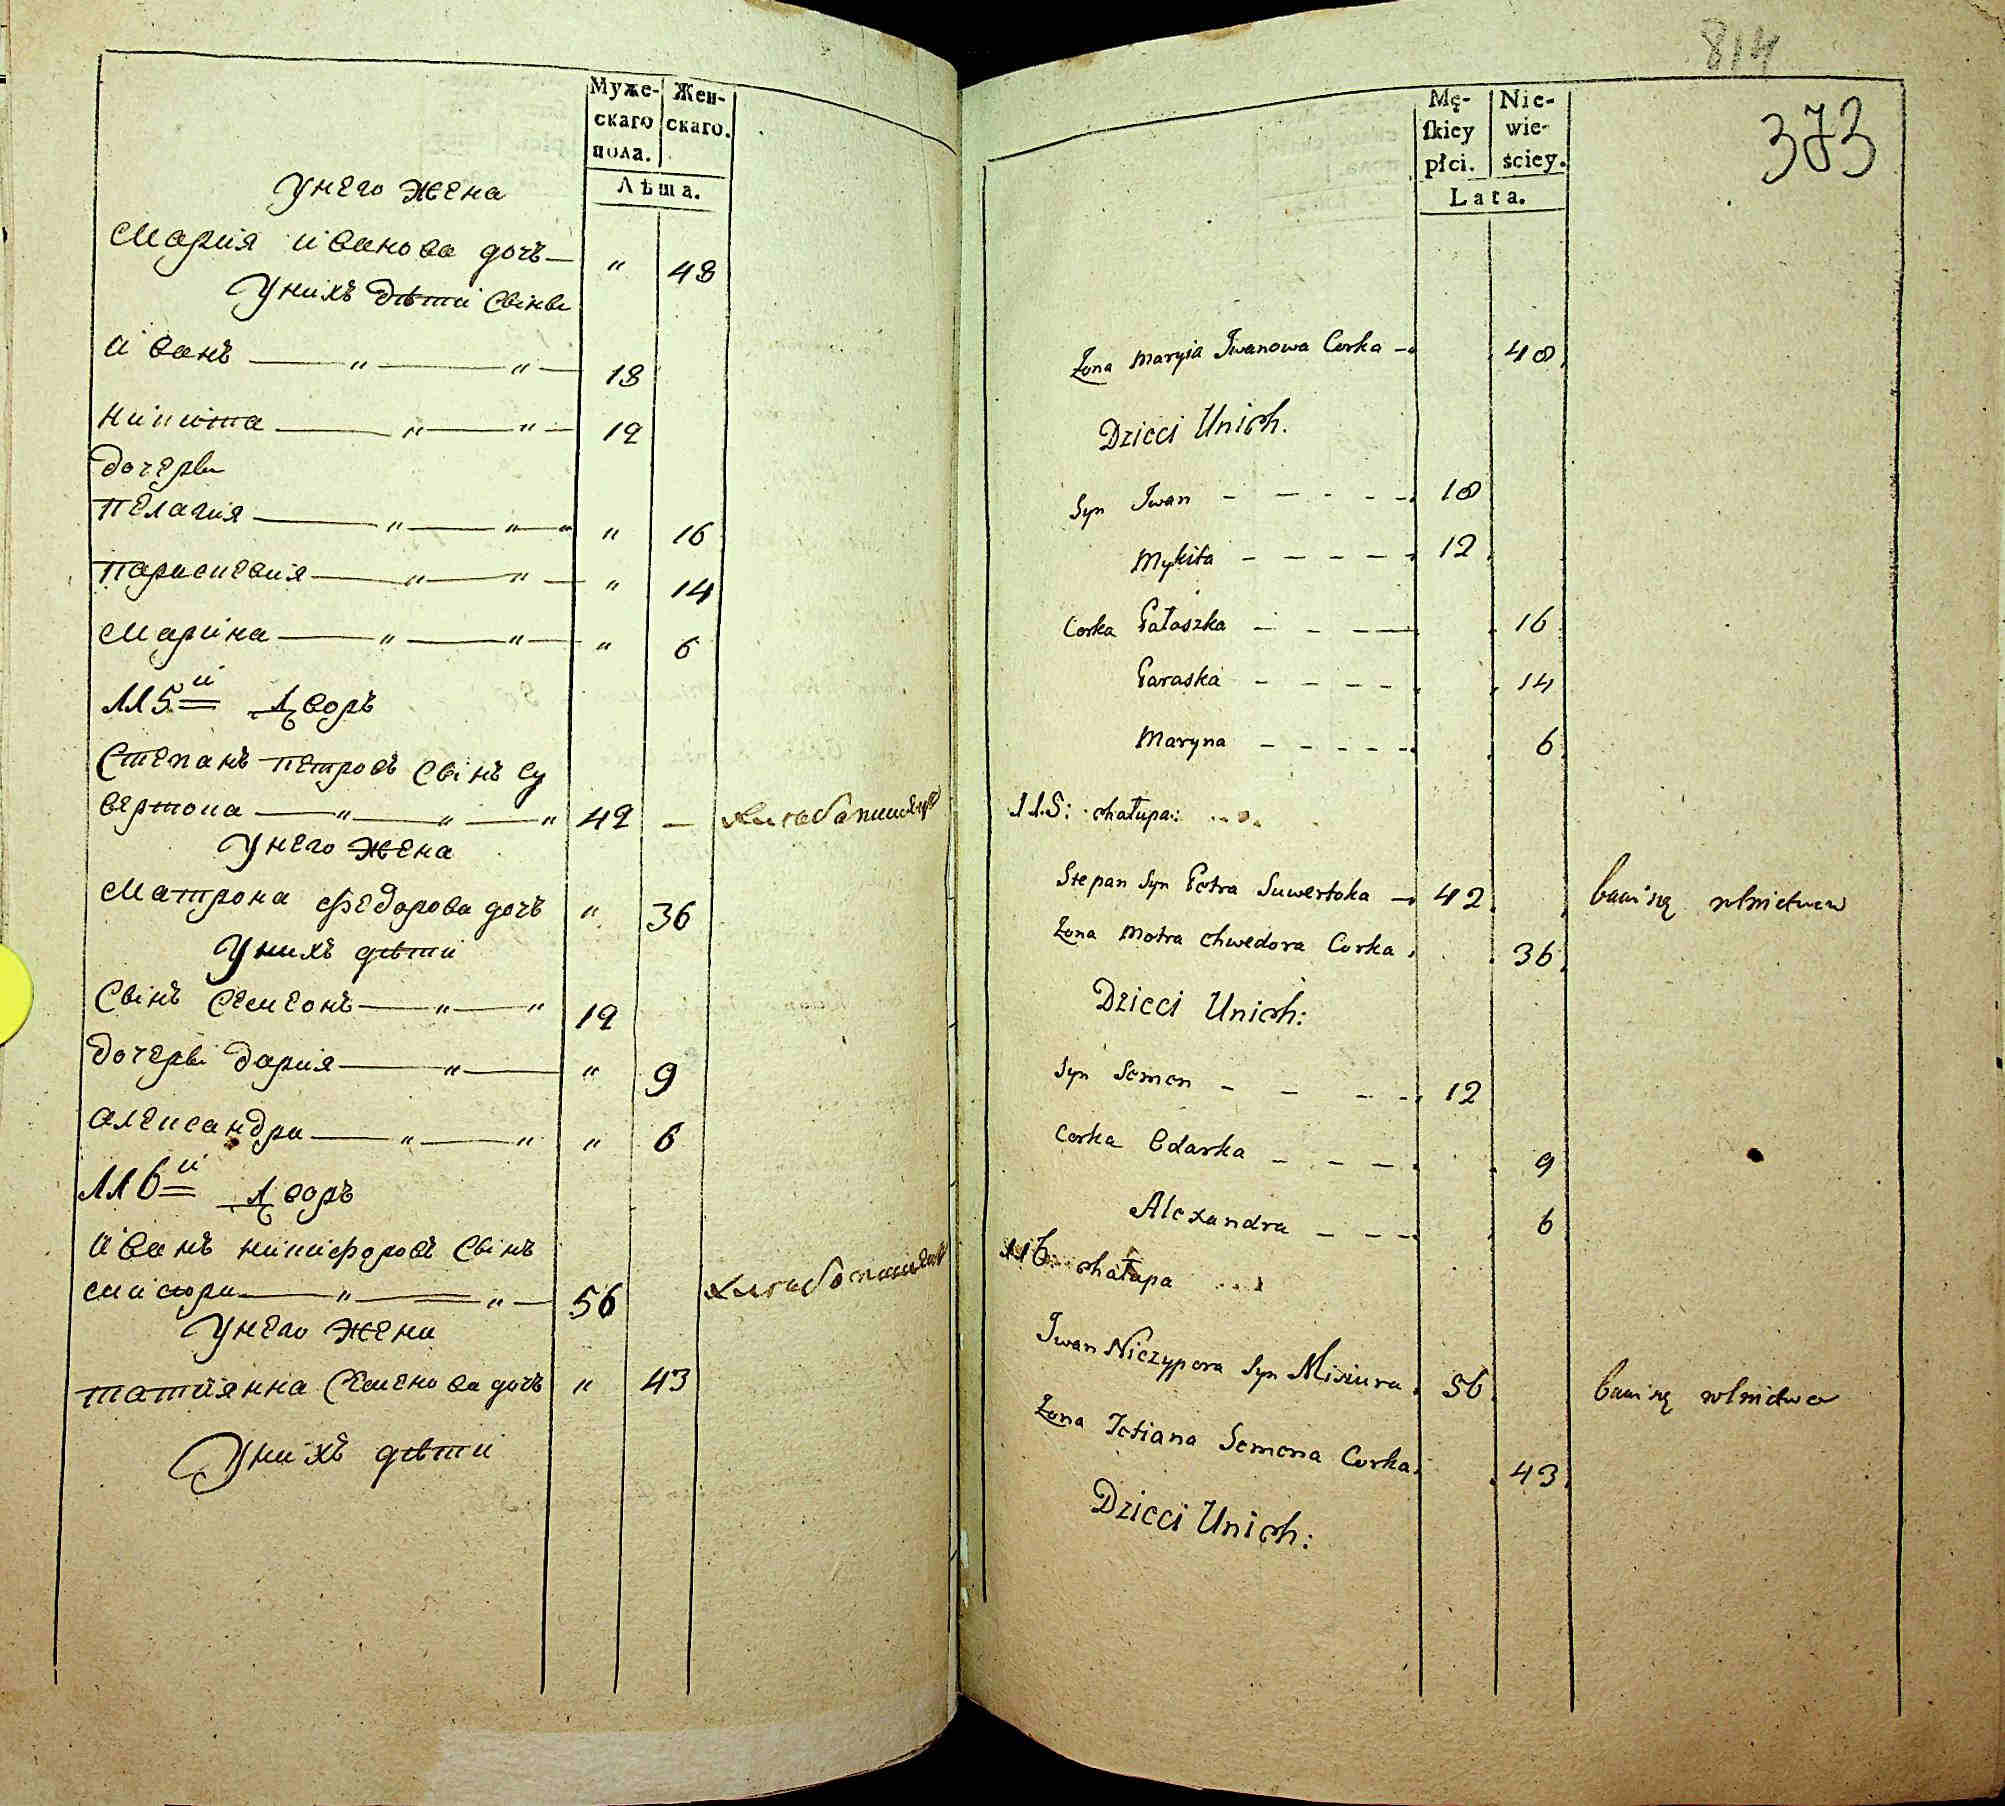 Муже-
скаго
пола.
Жен-
скаго.
Лѣта.
У него жена
Мария иванова дочь — " 48
У нихъ дѣти сынъ
иванъ — " — " — 18
никита — " — " — 12
дочеры
пелагия — " — " — " " 16
параскевия — " — " — " 14
марина — " — " — " 6
115й Дворъ
Степанъ петровъ сынъ су
вертока — " — " — " 42 — хлебопашецъ
У него жена
Матрона федорова дочь " 36
У нихъ дѣти
Сынъ Семенъ — " — " 12
дочеры дария — " — " 9
александра — " — " " 6
116й Дворъ
иванъ никифоровъ сынъ
мисюра — " — " — 56 хлебопашецъ
У него жена
татиянна Семенова дочь " 43
У нихъ дѣти
814
373
Mę-
ſkiey
płci.
Nie-
wie-
ściey.
Lata.
Żona Maryia Iwanowa Corka — 48
Dzieci Unich.
Syn Iwan - - - - - 18
Mykita - - - - - 12
Corka Pałaszka - - - - 16
Paraska - - - - - 14
Maryna - - - - - 6
115: chałupa:
Stepan Syn Petra Suwertoka — 42 bawi się rolnictwem
Żona Motra Chwedora Corka 36
Dzieci Unich:
Syn Semen - - - - 12
Corka Odarka - - - 9
Alexandra - - - 6
116: chałupa
Iwan Niczypora Syn Misiura 56 bawi się rolnictwem
Żona Tetiana Semena Corka 43
Dzieci Unich: